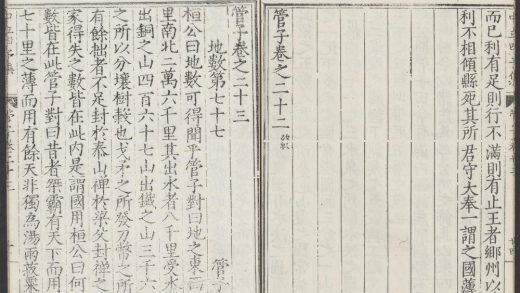 而已利有足則行不滿則有止王者鄉州以
利不相傾縣死其所君守大奉一謂之國薄
管子卷之二十二
管子卷之二十三
地數第七十七
管子
桓公曰地數可得聞乎管子對曰地之東西
里南北二萬六千里其出水者八千里受水
出銅之山四百六十七山出鐵之山三千六
之所以分壤樹穀也戈矛之所發刀幣之所
有餘拙者不足封於泰山禪於梁父封禪之
家得失之數皆在此內是謂國用桓公曰何
數皆在此管子對曰昔者桀霸有天下而用
七十里之薄而用有餘天非獨為湯雨菽粟